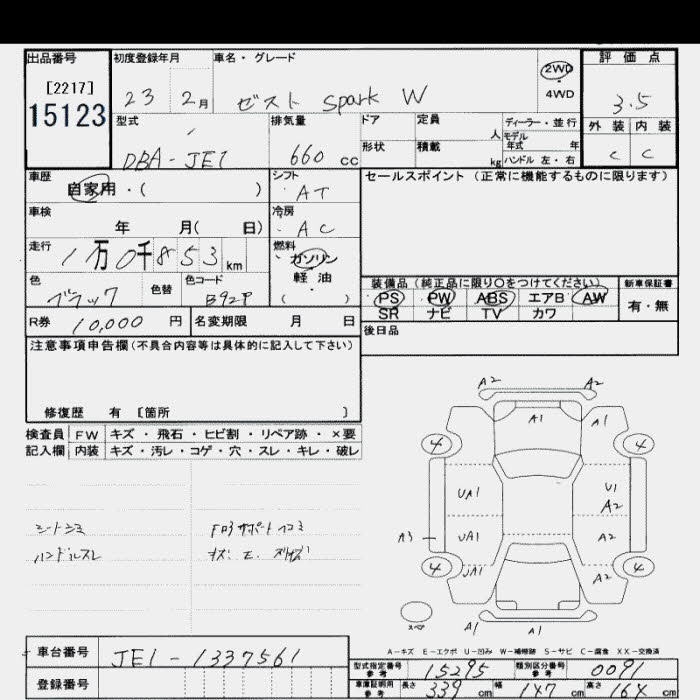 出品番号 初度登録年月 車名・グレード 評価点
[2217]
15123
23 2月 ゼスト Spark W
2WD
4WD
3.5
型式 排気量 ドア 定員 人 ディーラー・並行 外装 内装
DBA-JE1 660 cc
形状 積載 kg モデル年式 年
ハンドル 左・右
C C
車歴 シフト セールスポイント (正常に機能するものに限ります)
自家用・( ) AT
車検 冷房
年 月( 日) AC
走行 燃料
1万0千853km ガソリン
軽油
( )
色 色替 色コード
ブラック B92P
装備品(純正品に限り○をつけてください) 新車保証書
PS PW ABS エアB AW 有・無
SR ナビ TV カワ
R券 10,000 円 名変期限 月 日
後日品
注意事項申告欄(不具合内容等は具体的に記入して下さい)
修復歴 有 [箇所 ]
検査員 FW キズ・飛石・ヒビ割・リペア跡・×要
記入欄 内装 キズ・汚レ・コゲ・穴・スレ・キレ・破レ
シートシミ
ハンドルスレ
A2 A2
A1 A1
4 4
UA1 U1
A2
A3 UA1 A2
4 UA1 A2 4
スペア A1 A1
A-キズ E-エクボ U-凹み W-補修跡 S-サビ C-腐食 XX-交換済
車台番号 JE1-1337561
登録番号
型式指定番号 参考 15295 類別区分番号 参考 0091
車庫証明用 参考 長さ 339 cm 幅 147 cm 高さ 164 cm